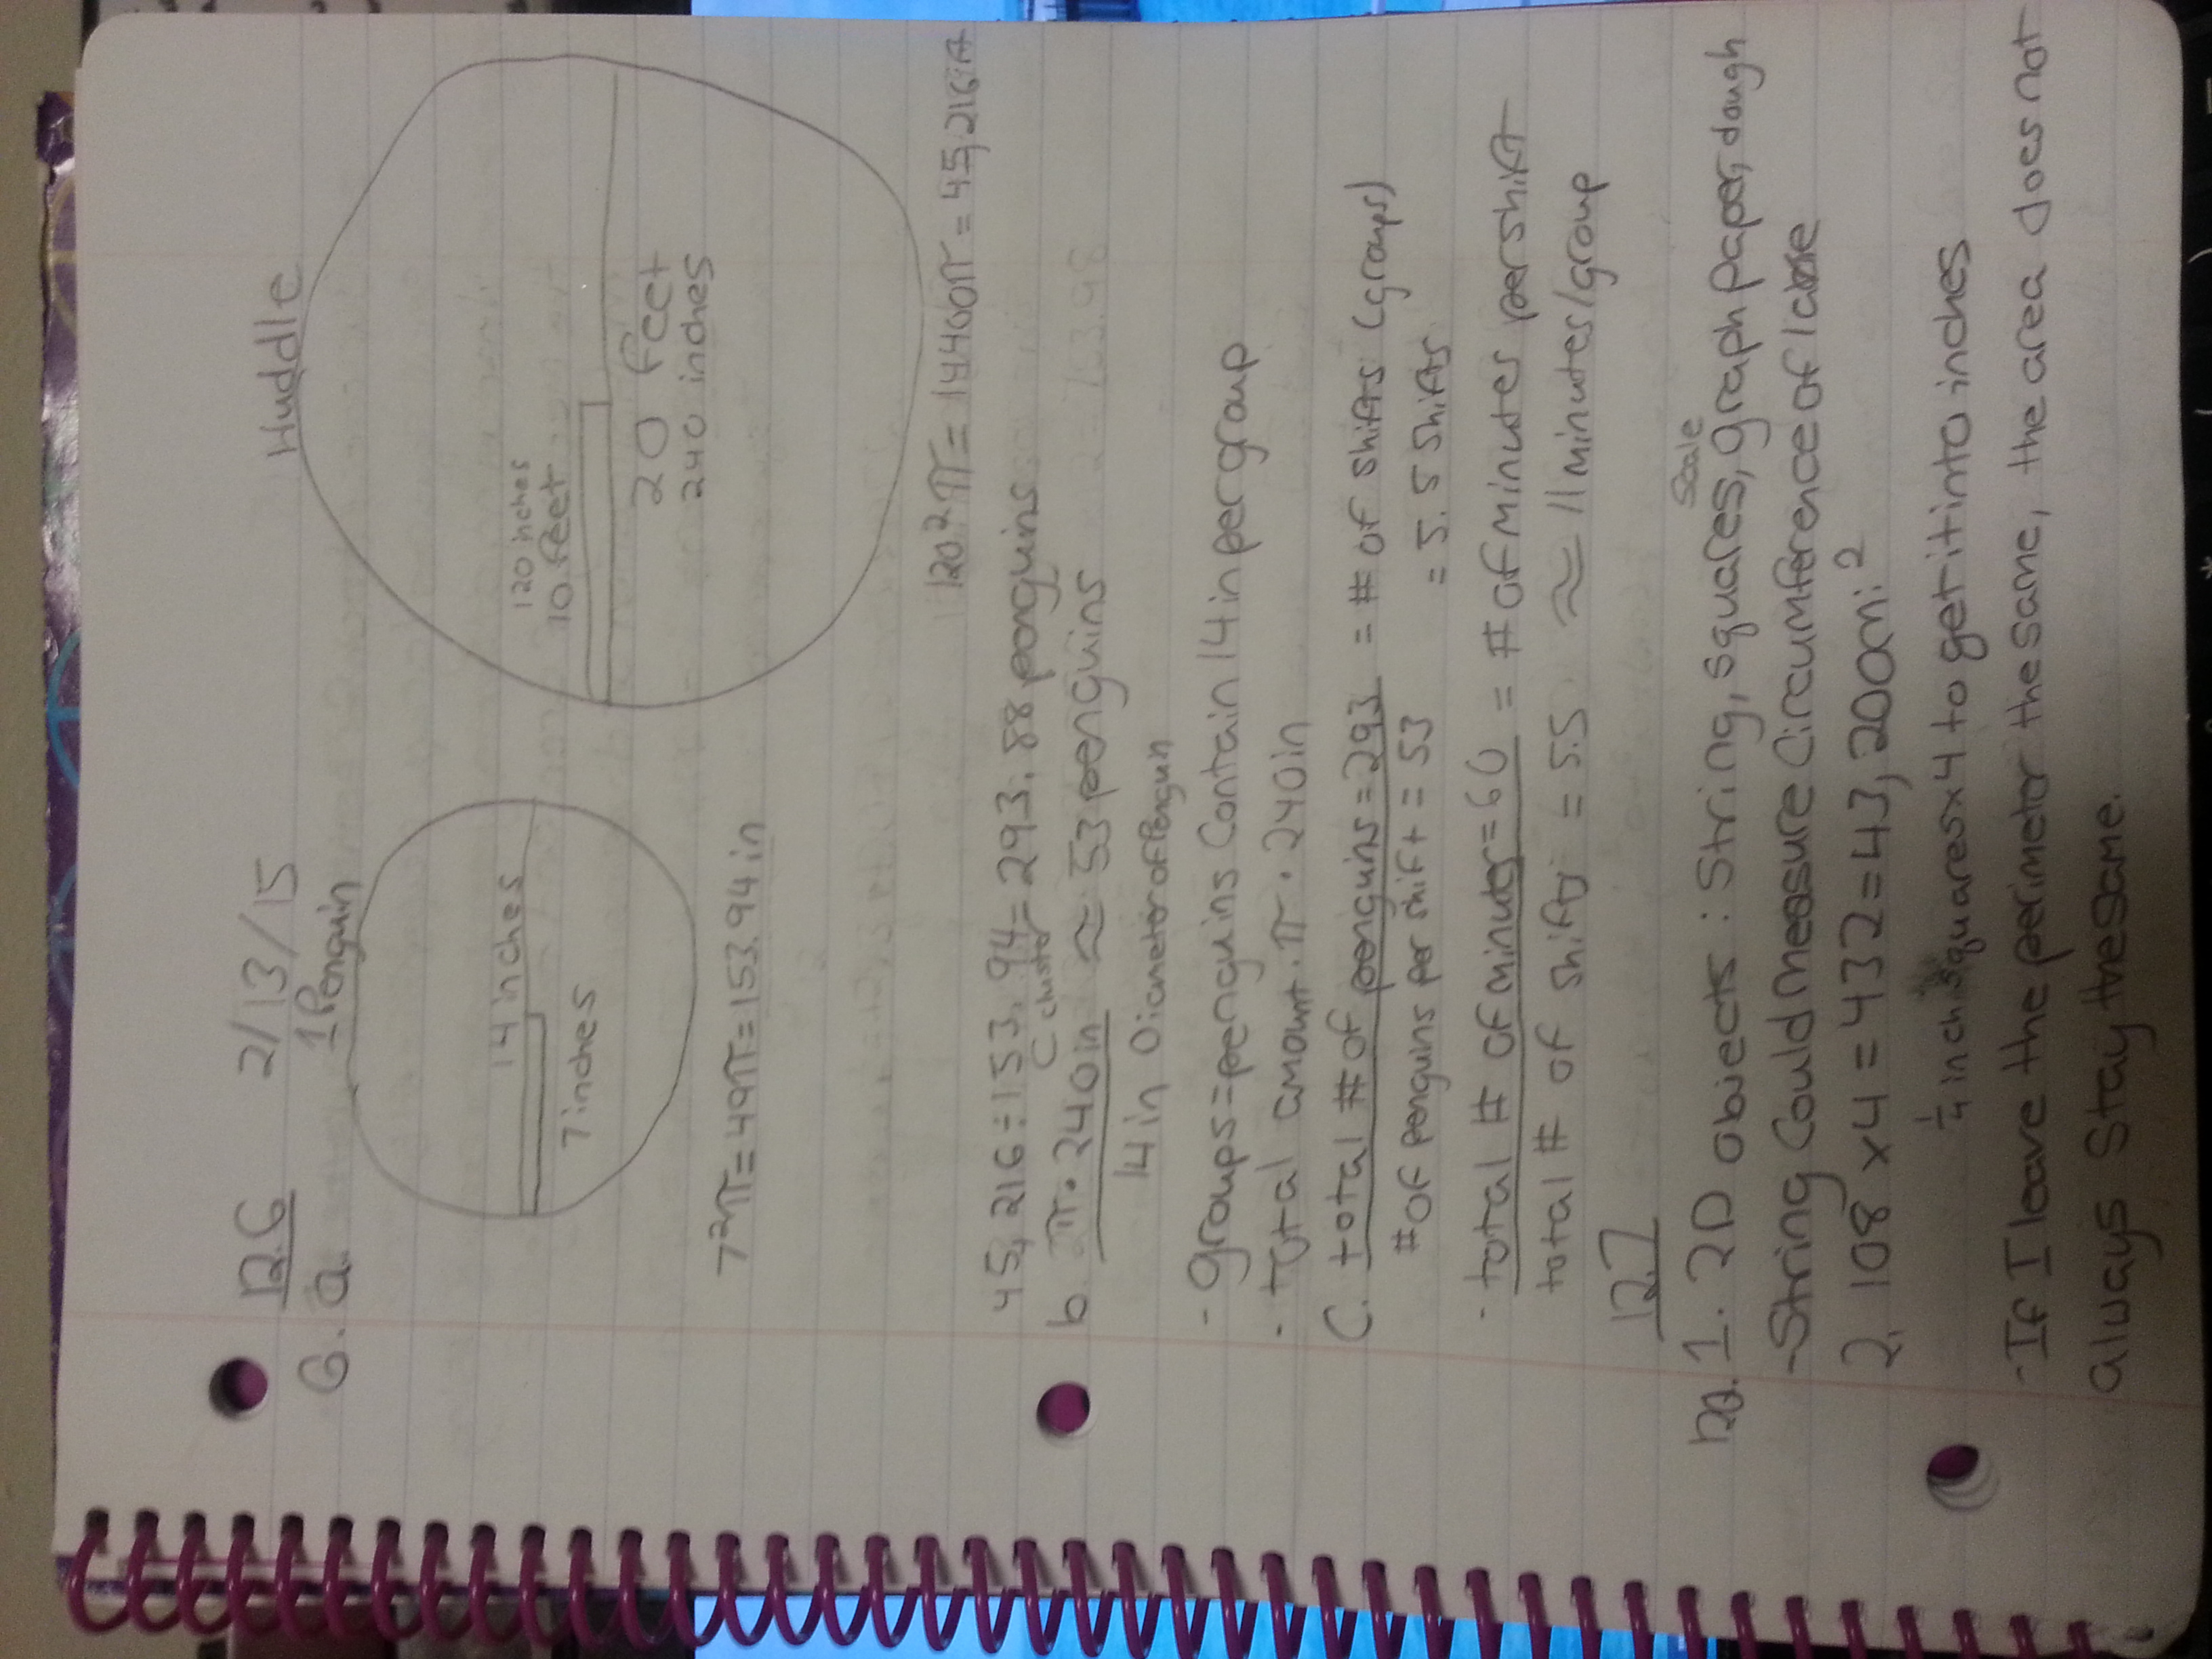 12.6 2/13/15
6. a. 1 Penguin
Huddle
14 inches
7 inches
120 inches
10 feet
20 feet
240 inches
7²π=49π=153.94in
120²π=14400π=45,216in
45,216÷153.94=293.88 penguins
b. π·240in ≈ 53 penguins
14in Diameter of Penguin
- groups=penguins contain 14in per group
· Total amount·π·240in
C. total # of penguins=293 = # of shifts (groups)
# of penguins per shift = 53 = 5.5 shifts
· total # of minutes=60 = # of minutes per shift
total # of shifts = 5.5 ≈ 11 minutes/group
12.7
1. 2D objects: String, squares, graph paper, dough
Scale
-String Could measure Circumference of lake
2. 108 x4 = 432=43,200mi²
1/4 inch squaresx4 to get it into inches
-If I leave the perimeter the same, the area does not
always Stay the same.